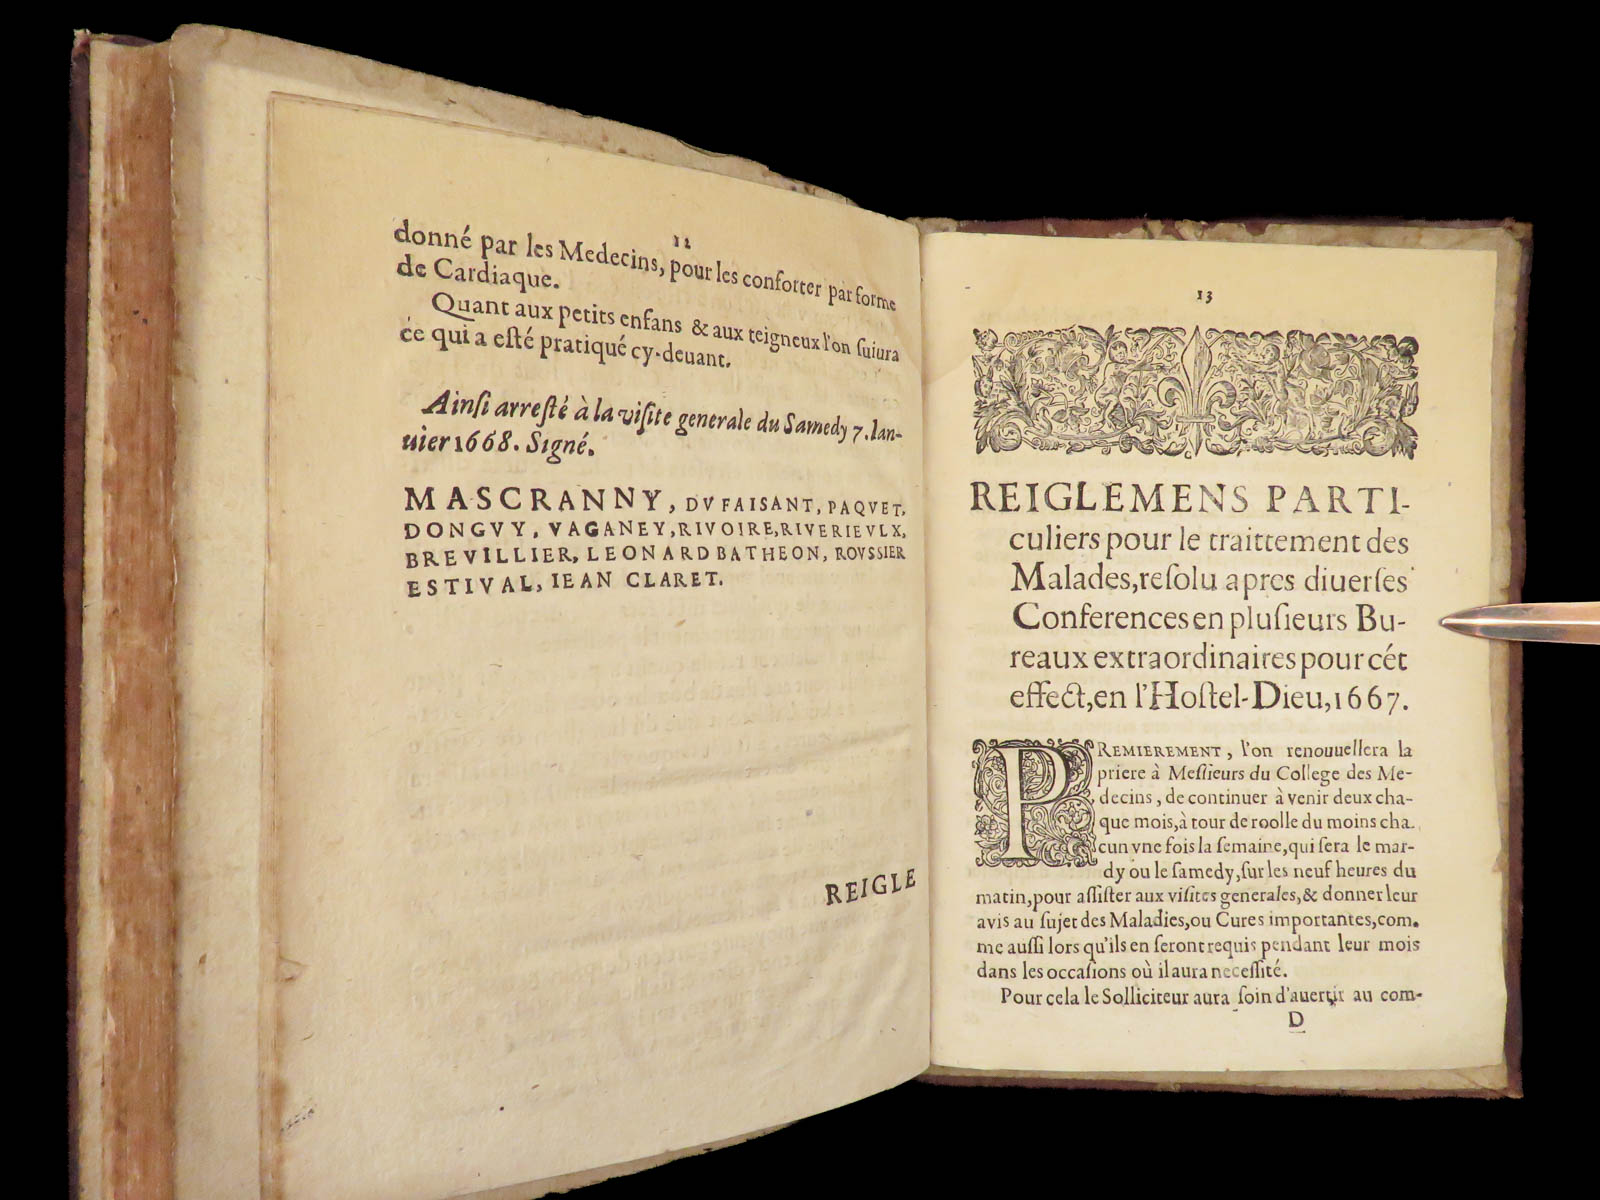 12
donné par les Medecins, pour les conforter par forme
de Cardiaque.
Quant aux petits enfans & aux teigneux l'on ſuiura
ce qui a eſté pratiqué cy-deuant.
Ainſi arreſté à la viſite generale du Samedy 7. Ian-
uier 1668. Signé.
MASCRANNY, DV FAISANT, PAQVET,
DONGVY, VAGANEY, RIVOIRE, RIVERIEVLX,
BREVILLIER, LEONARD BATHEON, ROVSSIER
ESTIVAL, IEAN CLARET.
REIGLE
13
REIGLEMENS PARTI-
culiers pour le traittement des
Malades, reſolu apres diuerſes
Conferences en pluſieurs Bu-
reaux extraordinaires pour cét
effect, en l'Hoſtel-Dieu, 1667.
PREMIEREMENT, l'on renouuellera la
priere à Meſſieurs du College des Me-
decins, de continuer à venir deux cha-
que mois, à tour de roolle du moins cha-
cun vne fois la ſemaine, qui ſera le mar-
dy ou le ſamedy, ſur les neuf heures du
matin, pour aſſiſter aux viſites generales, & donner leur
avis au ſujet des Maladies, ou Cures importantes, com-
me auſſi lors qu'ils en ſeront requis pendant leur mois
dans les occaſions où il aura neceſſité.
Pour cela le Solliciteur aura ſoin d'auertir au com-
D